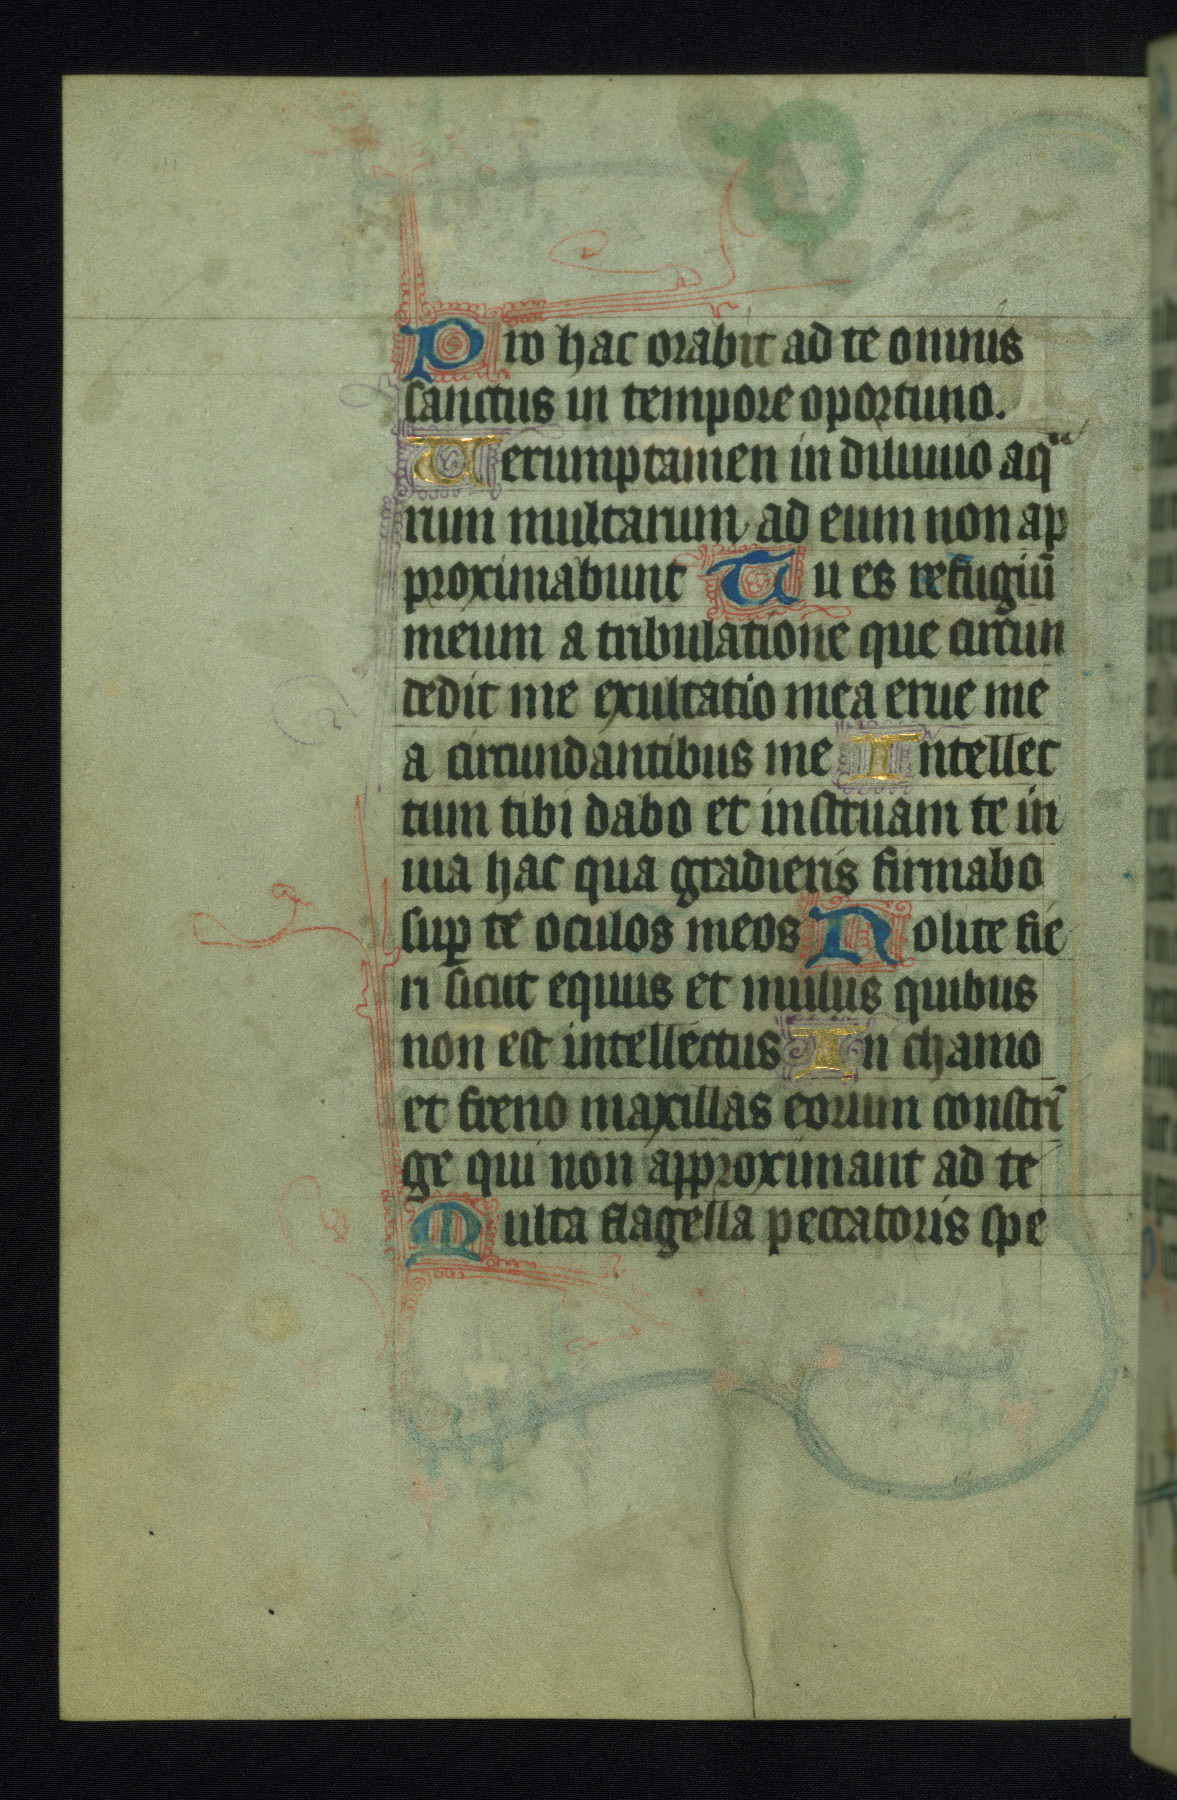 Pro hac orabit ad te omnis
sanctus in tempore oportuno.
Uerumptamen in diluuio aqͣ
rum multarum ad eum non ap
proximabunt Tu es refugiū
meum a tribulatione que circun
dedit me exultatio mea erue me
a circundantibus me Intellec
tum tibi dabo et instruam te in
uia hac qua gradieris firmabo
suꝑ te oculos meos Nolite fie
ri sicut equus et mulus quibus
non est intellectus In chamo
et freno maxillas eorum constrī
ge qui non approximant ad te
Multa flagella peccatoris spe